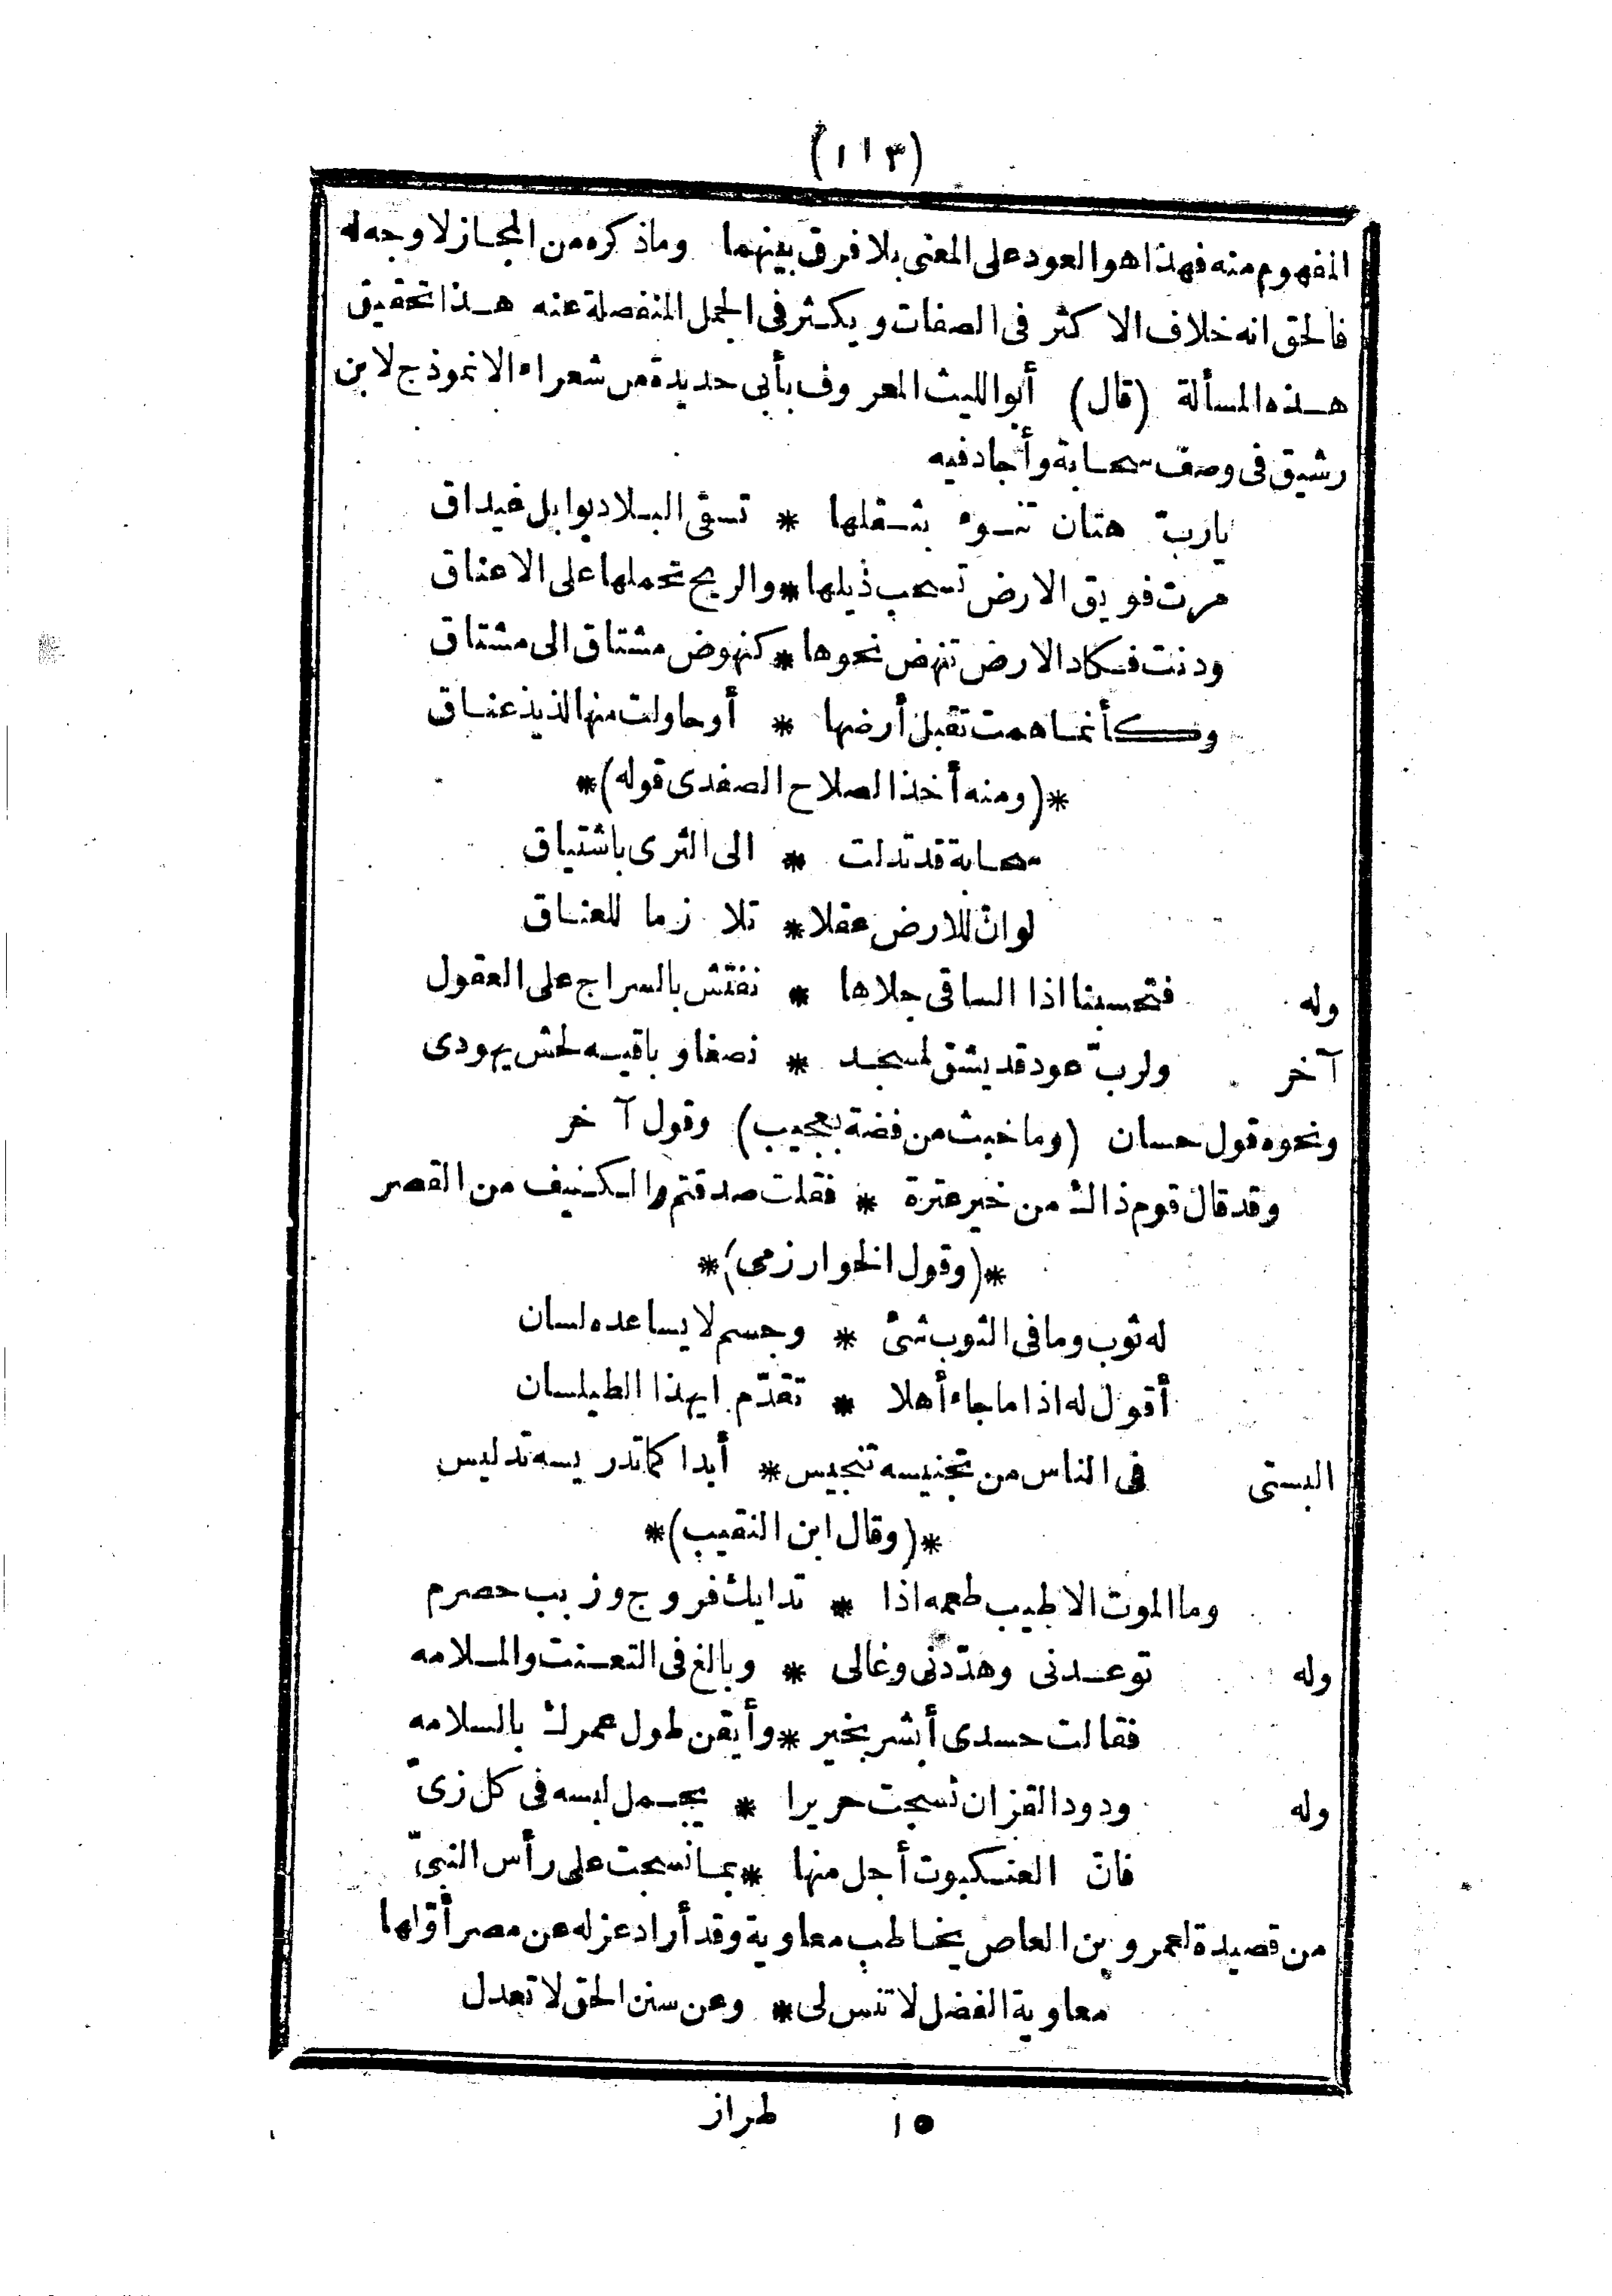 (١١٣)
المفهوم منه فهذا هو العود على المعنى بلا فرق بينهما وما ذكره من المجاز لا وجه له
فالحق انه خلاف الاكثر فى الصفات ويكثر فى الجمل المنفصلة عنه هذا تحقيق
هذه المسألة (قال) أبو الليث المعروف بأبى حديدة من شعراء الانموذج لابن
رشيق فى وصف سحابة وأجاد فيه
يارب هتان تنوء بثقلها * تسقى البلاد بوابل غيداق
مرت فويق الارض تسحب ذيلها * والريح تحملها على الاعناق
ودنت فكاد الارض تنهض نحوها * كنهوض مشتاق الى مشتاق
وكأنما همت تقبل أرضها * أو حاولت منها لذيذ عناق
*(ومنه أخذ الصلاح الصفدى قوله)*
سحابة قد تدلت * الى الثرى باشتياق
لوانّ للارض عقلا * تلا زما للعناق
وله فتحسبنا اذا الساقى جلاها * نفتش بالسراج على العقول
آخر ولربّ عود قد يشق لمسجد * نصفا و باقيه لحش يهودى
ونحوه قول حسان (وما خبث من فضة بعجيب) وقول آخر
وقد قال قوم ذاك من خير عترة * فقلت صدقتم والكنيف من القصر
*(وقول الخوارزمى)*
له ثوب وما فى الثوب شئ * وجسم لا يساعده لسان
أقول له اذا ما جاء أهلا * تقدّم ايهذا الطيلسان
البستى فى الناس من تجنيسه تنجيس * أبدا كما تدريسه تدليس
*(وقال ابن النقيب)*
وما الموت الا طيب طعمه اذا * تدايك فروج وزبب حصرم
وله توعدنى وهدّدنى وغالى * وبالغ فى التعنت والملامه
فقالت حسدى أبشر بخير * وأيقن طول عمرك بالسلامه
وله ودود القزان نسجت حريرا * يجمل لبسه فى كل زىّ
فانّ العنكبوت أجل منها * بما نسجت على رأس النبىّ
من قصيدة لعمرو بن العاص يخاطب معاوية وقد أراد عزله عن مصر أوّلها
معاوية الفضل لا تنس لى * وعن سنن الحق لا تعدل
١٥ طراز